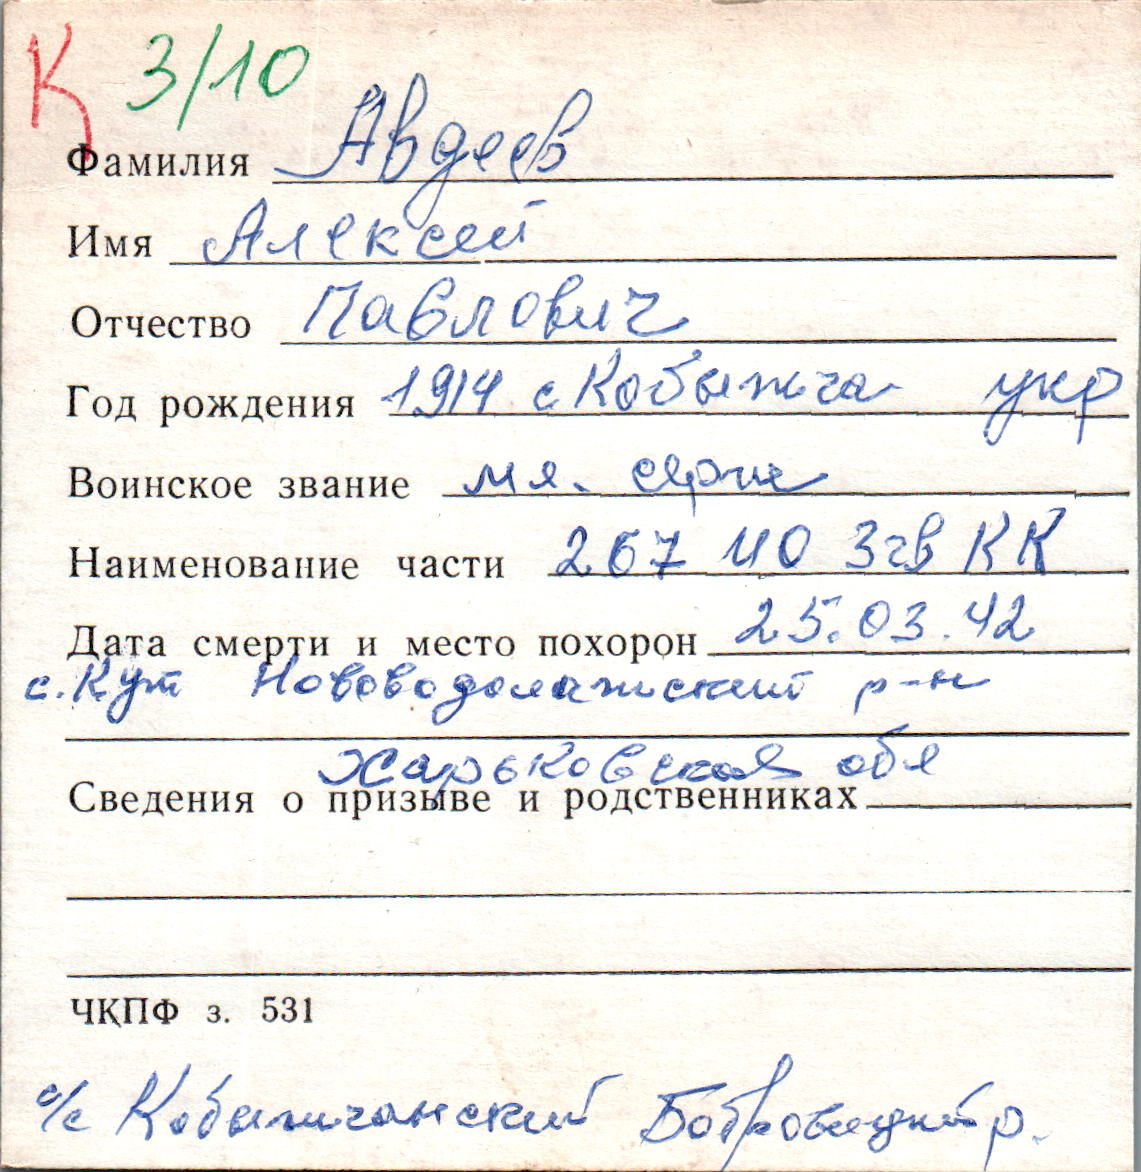 К 3/10
Фамилия Авдеев
Имя Алексей
Отчество Павлович
Год рождения 1914 с Кобыжча укр
Воинское звание мл. серж
Наименование части 267 ИО 3гв КК
Дата смерти и место похорон 25.03.42
с. Кут Нововодолажский р-н
Харьковская обл
Сведения о призыве и родственниках
ЧКПФ з. 531
с/с Кобыжчанский Бобровицкий р.